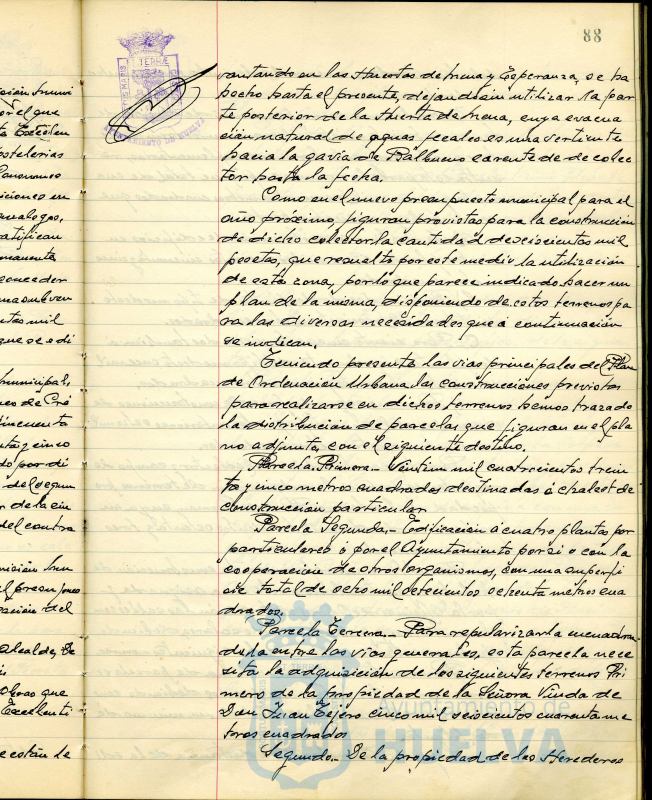 88
vantando en las Huertas de Mena y Esperanza, se ha
hecho hasta el presente, dejando sin utilizar la par
te posterior de la Huerta de Mena, cuya evacua
ción natural de aguas fecales es una vertiente
hacia la gavia de Balbueno carente de colec
tor hasta la fecha.
Como en el nuevo presupuesto municipal para el
año próximo, figuran provistas para la construcción
de dicho colector la cantidad de seiscientas mil
pesetas, que resuelto por este medio la utilización
de esta zona, por lo que parece indicado hacer un
plan de la misma, disponiendo de estos terrenos pa
ra las diversas necesidades que á continuación
se indican.
Teniendo presente las vias principales del Plan
de Ordenación Urbana, las construcciones previstas
para realizarse en dichos terrenos hemos trazado
la distribución de parcelas que figuran en el pla
no adjunto, con el siguiente destino.
Parcela Primera.- Veintiun mil cuatrocientos trein
ta y cinco metros cuadrados destinadas á chalest de
construcción particular
Parcela Segunda.- Edificación á cuatro plantas por
particulares ó por el Ayuntamiento por si o con la
cooperación de otros organismos, con una superfi
cie total de ocho mil setecientos setenta metros cua
drados.
Parcela Tercera.- Para regularizar la
dada entre las vias generales, esta parcela nece
sita la adquisición de los siguientes terrenos Pri
mero de la propiedad de la Señora Viuda de
Don Juan Tejero cinco mil seiscientos cuarenta me
tros cuadrados
Segundo.- De la propiedad de los Herederos
Ayuntamiento de
HUELVA